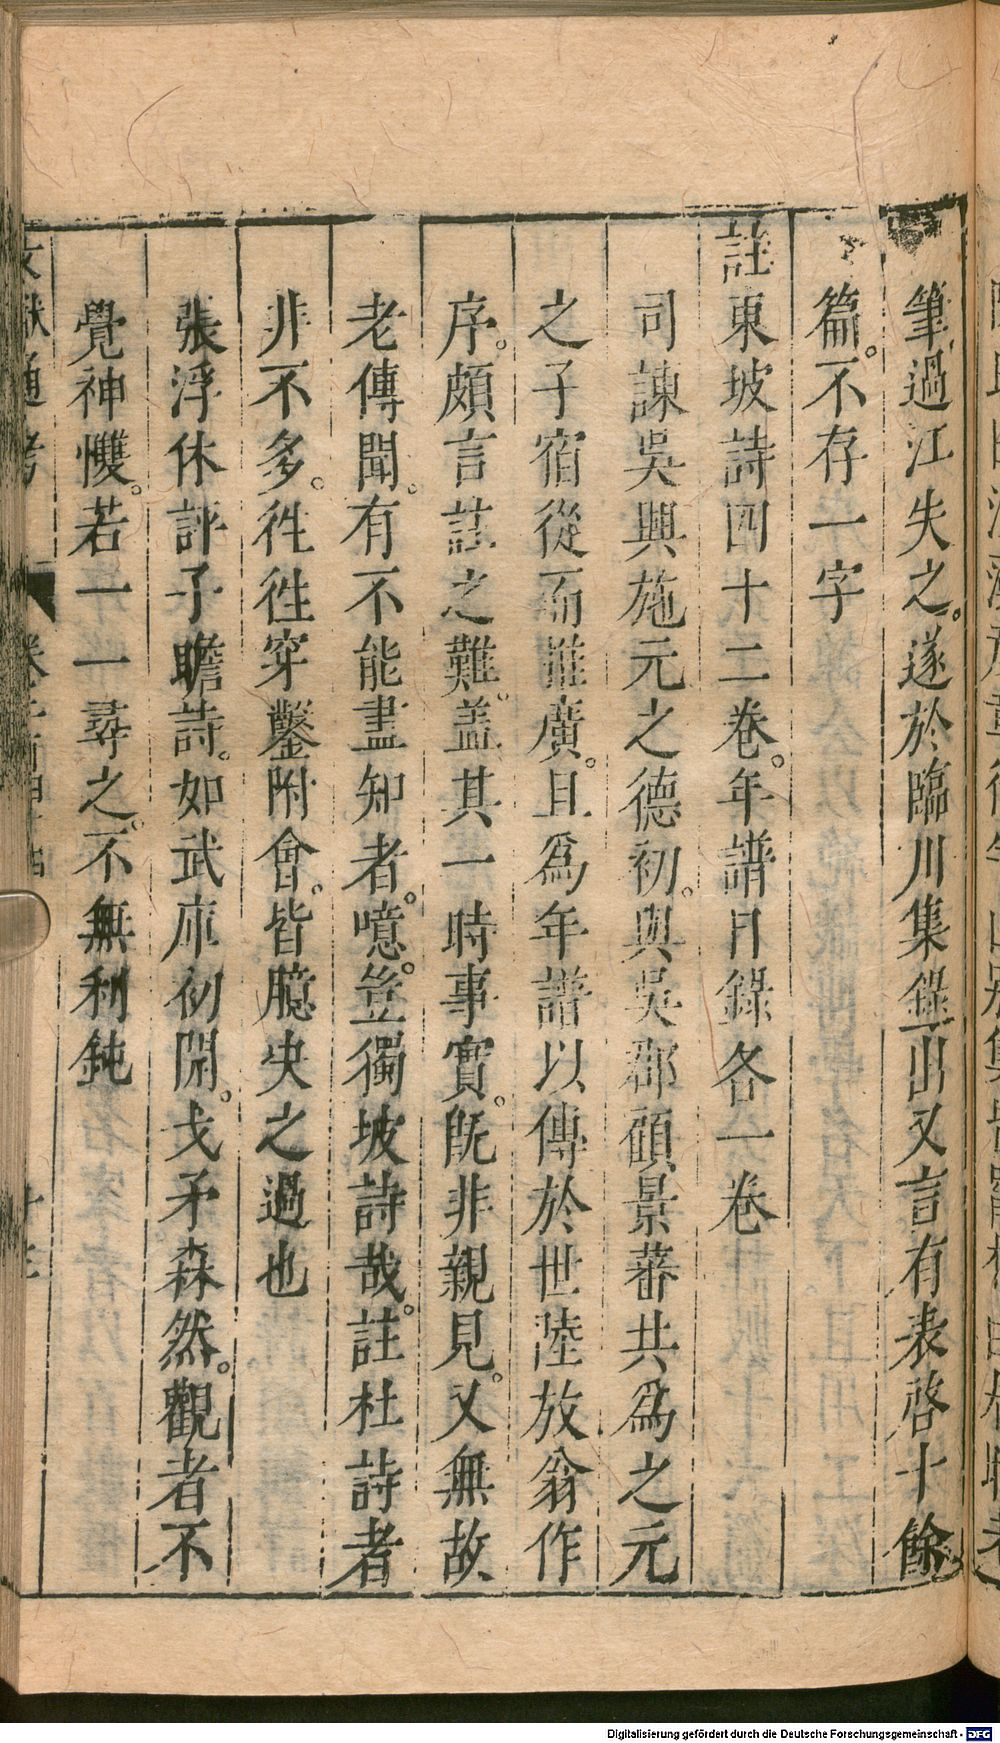 筆過江失之。遂於臨川集錄出又言有表啓十餘
篇。不存一字
註東坡詩四十二卷。年譜目錄各一卷
司諫吳興施元之德初。與吳郡顧景蕃共爲之元
之子宿從而推廣。且爲年譜以傳於世陸放翁作
序。頗言註之難。蓋其一時事實。旣非親見。又無故
老傳聞。有不能盡知者。噫。豈獨坡詩哉。註杜詩者
非不多。徃徃穿鑿附會。皆臆决之過也
張浮休評子瞻詩。如武庫初開。戈矛森然。觀者不
覺神㦜。若一一尋之。不無利鈍
Digitalisierung gefördert durch die Deutsche Forschungsgemeinschaft - DFG